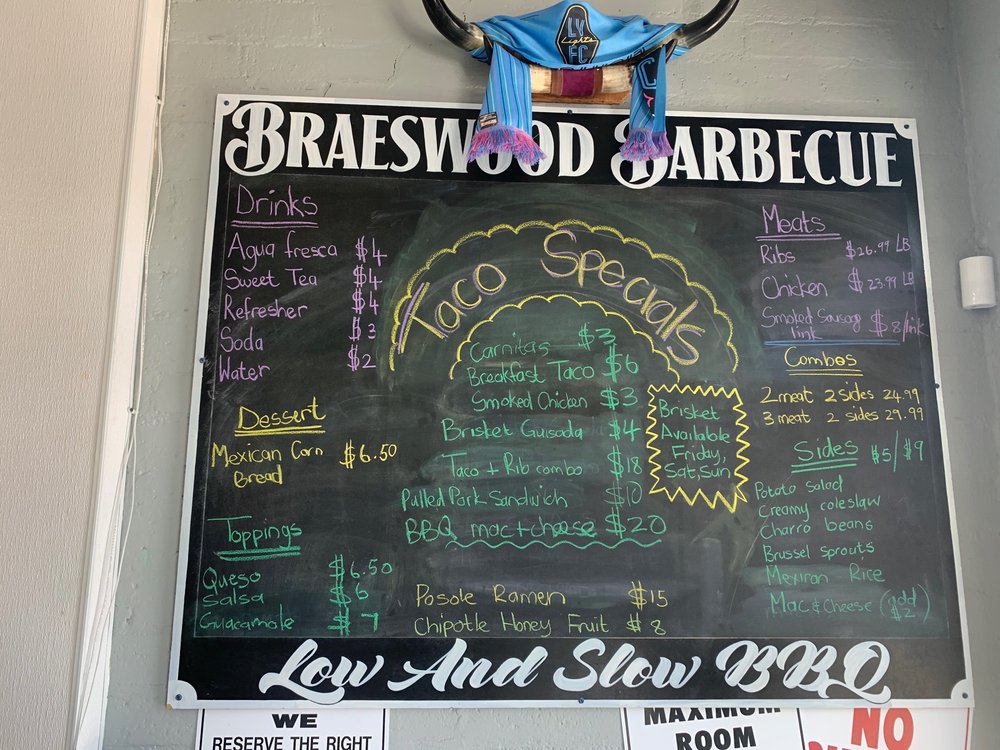 LV
Lights
FC
BRAESWOOD BARBECUE
Drinks
Agua fresca $4
Sweet Tea $4
Refresher $4
Soda $3
Water $2
Dessert
Mexican Corn $6.50
Bread
Toppings
Queso $6.50
Salsa $6
Guacamole $7
Taco Specials
Carnitas $3
Breakfast Taco $6
Smoked Chicken $3
Brisket Guisada $4
Taco + Rib combo $18
Pulled Pork Sandwich $10
BBQ mac+cheese $20
Posole Ramen $15
Chipotle Honey Fruit $8
Brisket
Available
Friday,
Sat,Sun
Meats
Ribs $26.99 LB
Chicken $23.99 LB
Smoked Sausage
link $8/link
Combos
2 meat 2 sides 24.99
3 meat 2 sides 29.99
Sides $5/$9
Potato Salad
Creamy coleslaw
Charro beans
Brussel sprouts
Mexican Rice
Mac & Cheese (add
$2)
Low And Slow BBQ
WE
RESERVE THE RIGHT
MAXIMUM
ROOM
NO